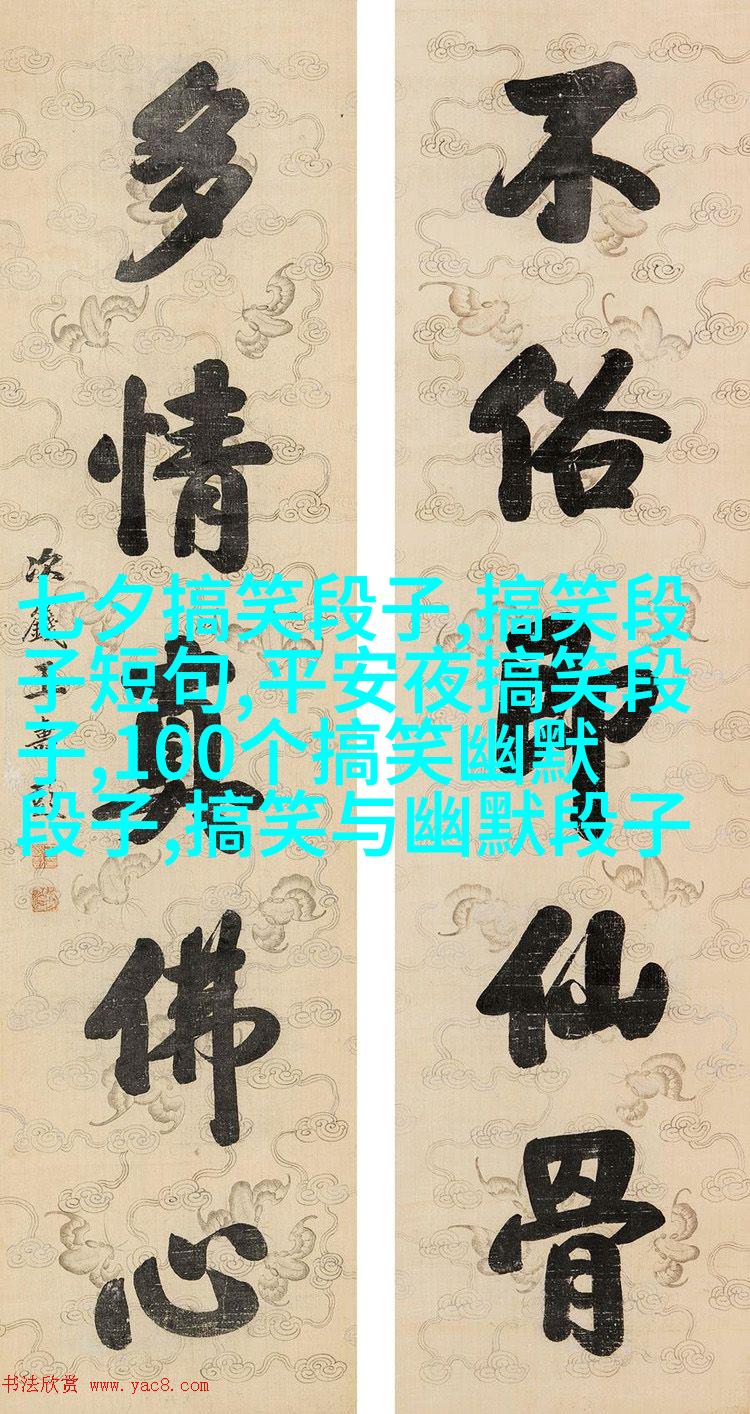 不俗即仙骨
多情真佛心
次籛王壽
七夕搞笑段子,搞笑段
子短句,平安夜搞笑段
子,100个搞笑幽默
段子,搞笑与幽默段子
书法欣赏 www.yac8.com